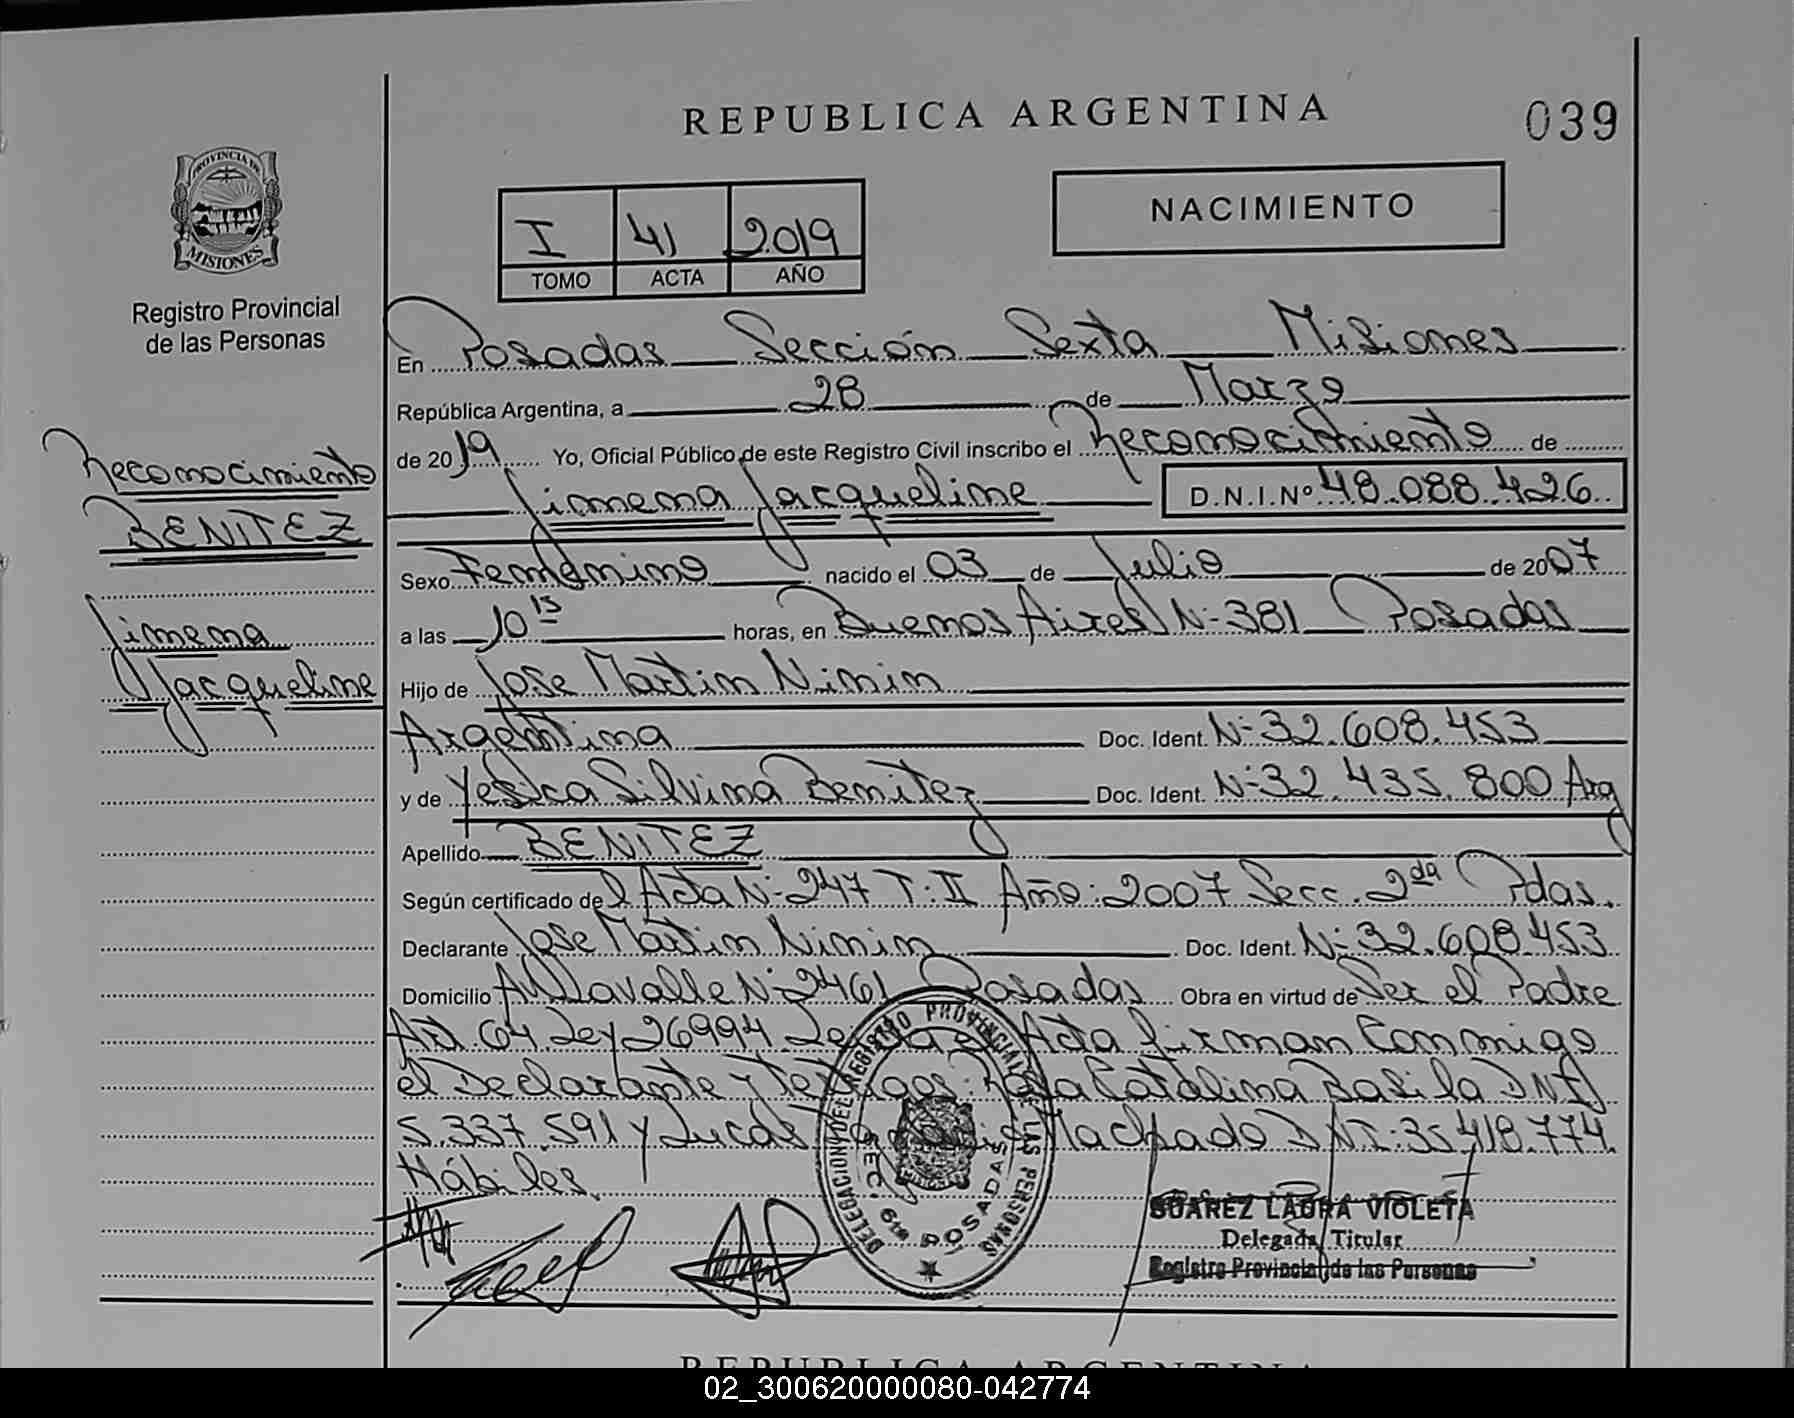 REPUBLICA ARGENTINA
039
PROVINCIA DE
MISIONES
Registro Provincial
de las Personas
I 41 2019
TOMO ACTA AÑO
NACIMIENTO
Reconocimiento
BENITEZ
Jimena
Jacqueline
En Posadas Sección Sexta Misiones
República Argentina, a 28 de Marzo
de 2019 Yo, Oficial Público de este Registro Civil inscribo el Reconocimiento de
Jimena Jacqueline D.N.I.Nº 48.088.426
Sexo Femenino nacido el 03 de Julio de 2007
a las 10 15 horas, en Buenos Aires N-381 Posadas
Hijo de Jose Martin Nimin
Argentina Doc. Ident. N-32.608.453
y de Yesica Silvina Benitez Doc. Ident. N-32.435.800 Arg
Apellido BENITEZ
Según certificado del Acta N-247 T:II Año:2007 Secc. 2da Pdas.
Declarante Jose Martin Nimin Doc. Ident. N-32.608.453
Domicilio Lavalle N-2461 Posadas Obra en virtud de Ser el Padre
Art. 64 Ley 26994 Acta firman Conmigo
el Declarante y Testigos: Rosa Catalina Basila DNI
5.337.591 y Lucas Machado DNI:35.418.774.
Hábiles
DELEGACION DEL REGISTRO PROVINCIAL DE LAS PERSONAS
SEC. 6ta POSADAS
SUAREZ LAURA VIOLETA
Delegada Titular
Registro Provincial de las Personas
REPUBLICA ARGENTINA
02_300620000080-042774